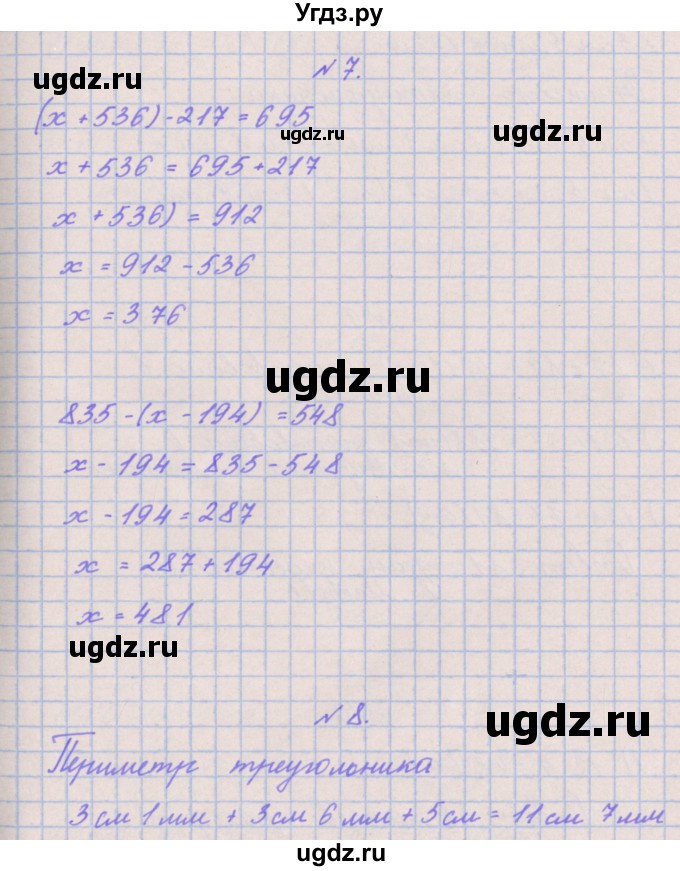 Угдз.ру
ugdz.ru
№ 7.
(x + 536) - 217 = 695
ugdz.ru
ugdz.ru
x + 536 = 695 + 217
x + 536) = 912
x = 912 - 536
x = 376
ugdz.ru
835 - (x - 194) = 548
x - 194 = 835 - 548
x - 194 = 287
x = 287 + 194
x = 481
ugdz.ru
№ 8.
ugdz.ru
Периметр треугольника
3 см 1 мм + 3 см 6 мм + 5 см = 11 см 7 мм
ugdz.ru